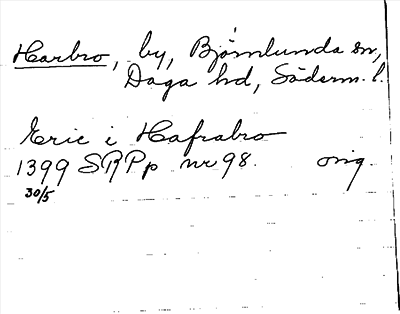 Harbro, by, Björnlunda sn,
Daga hd, Söderm. l.
Eric i Hafrabro
1399 SRPp nr 98. orig.
30/5